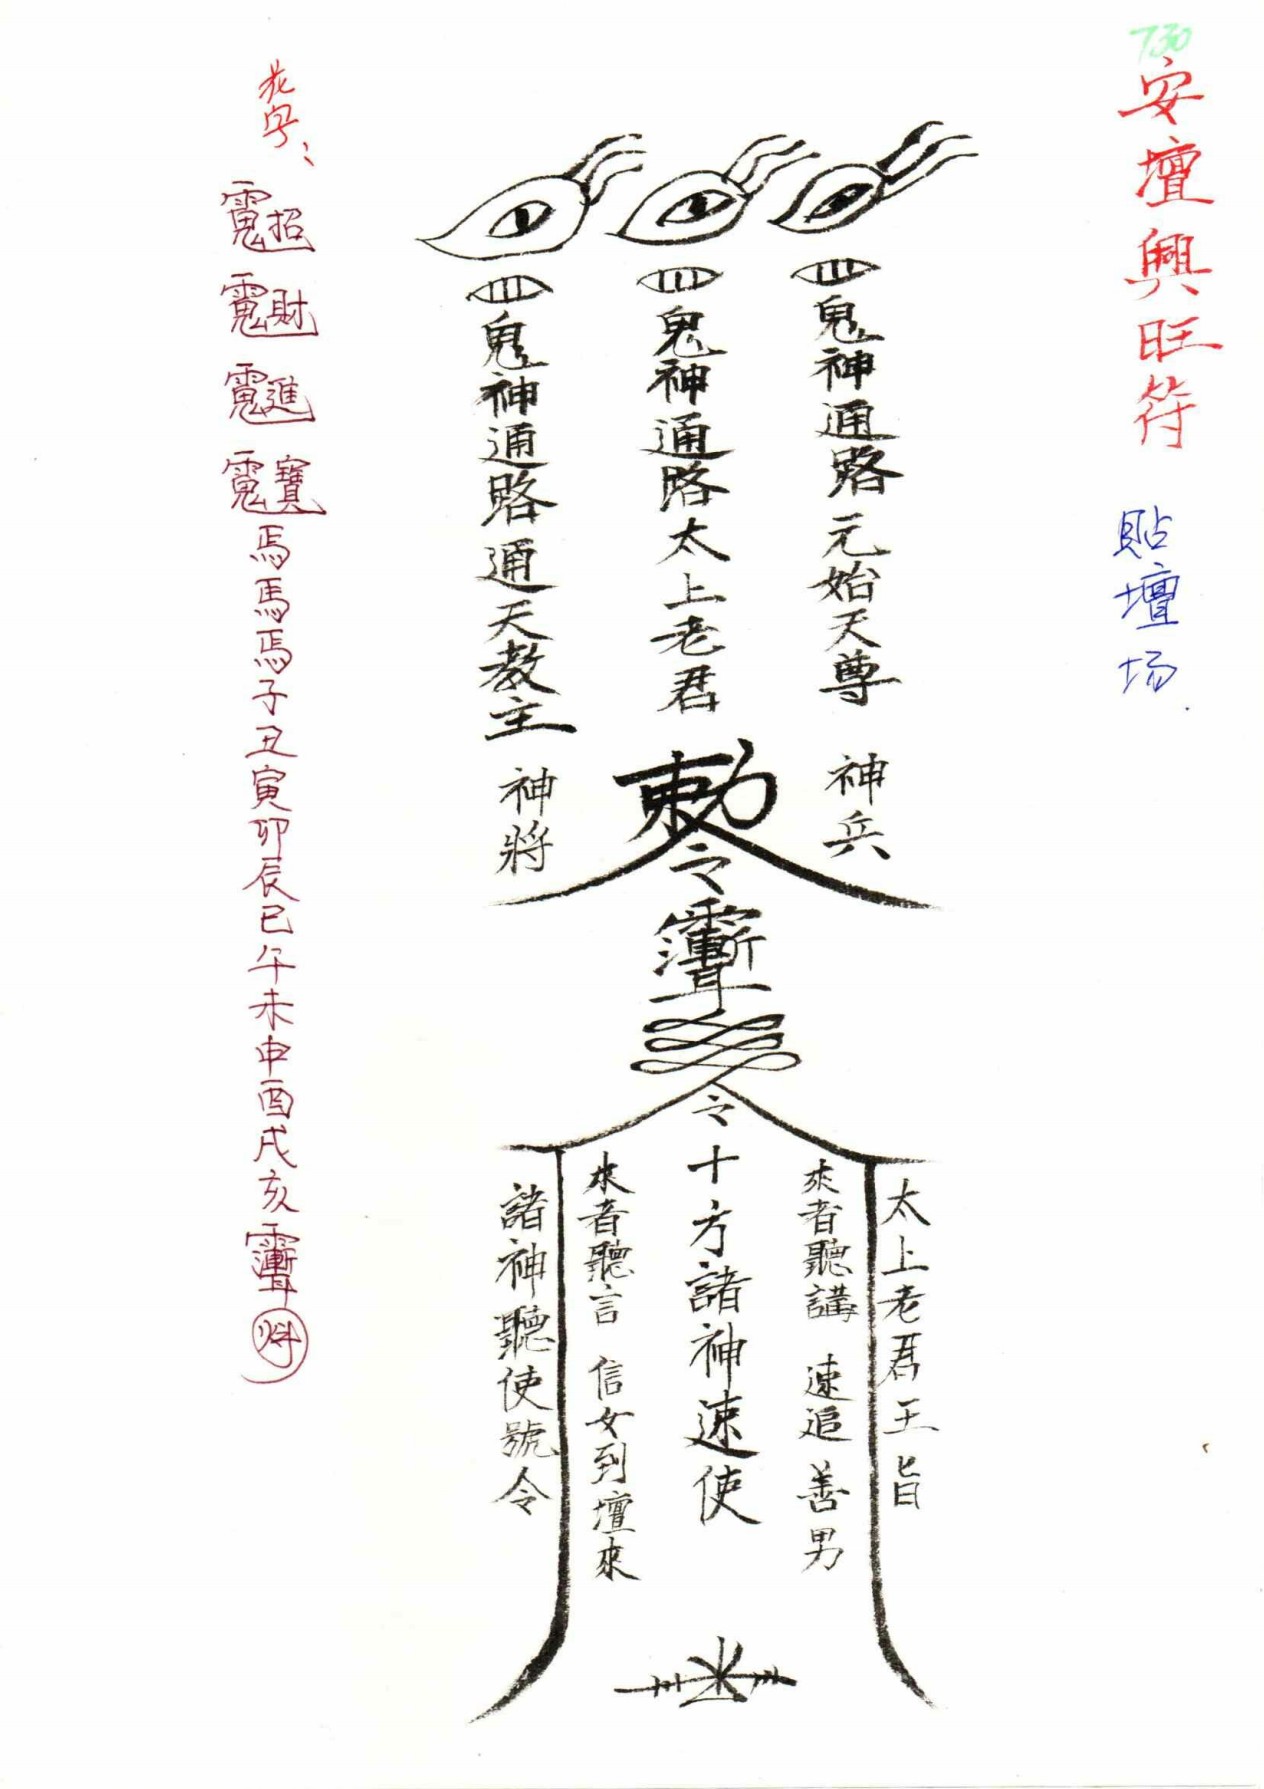 730
安壇興旺符
貼壇场
鬼神通路元始天尊
鬼神通路太上老君
鬼神通路通天教主
神兵
勅令
神將
令
太上老君王旨
來者聽講 速追 善男
十方諸神速使
來者聽言 信女到壇來
諸神聽使號令
花字:
招
財
進
寶
焉焉焉子丑寅卯辰巳午未申酉戌亥